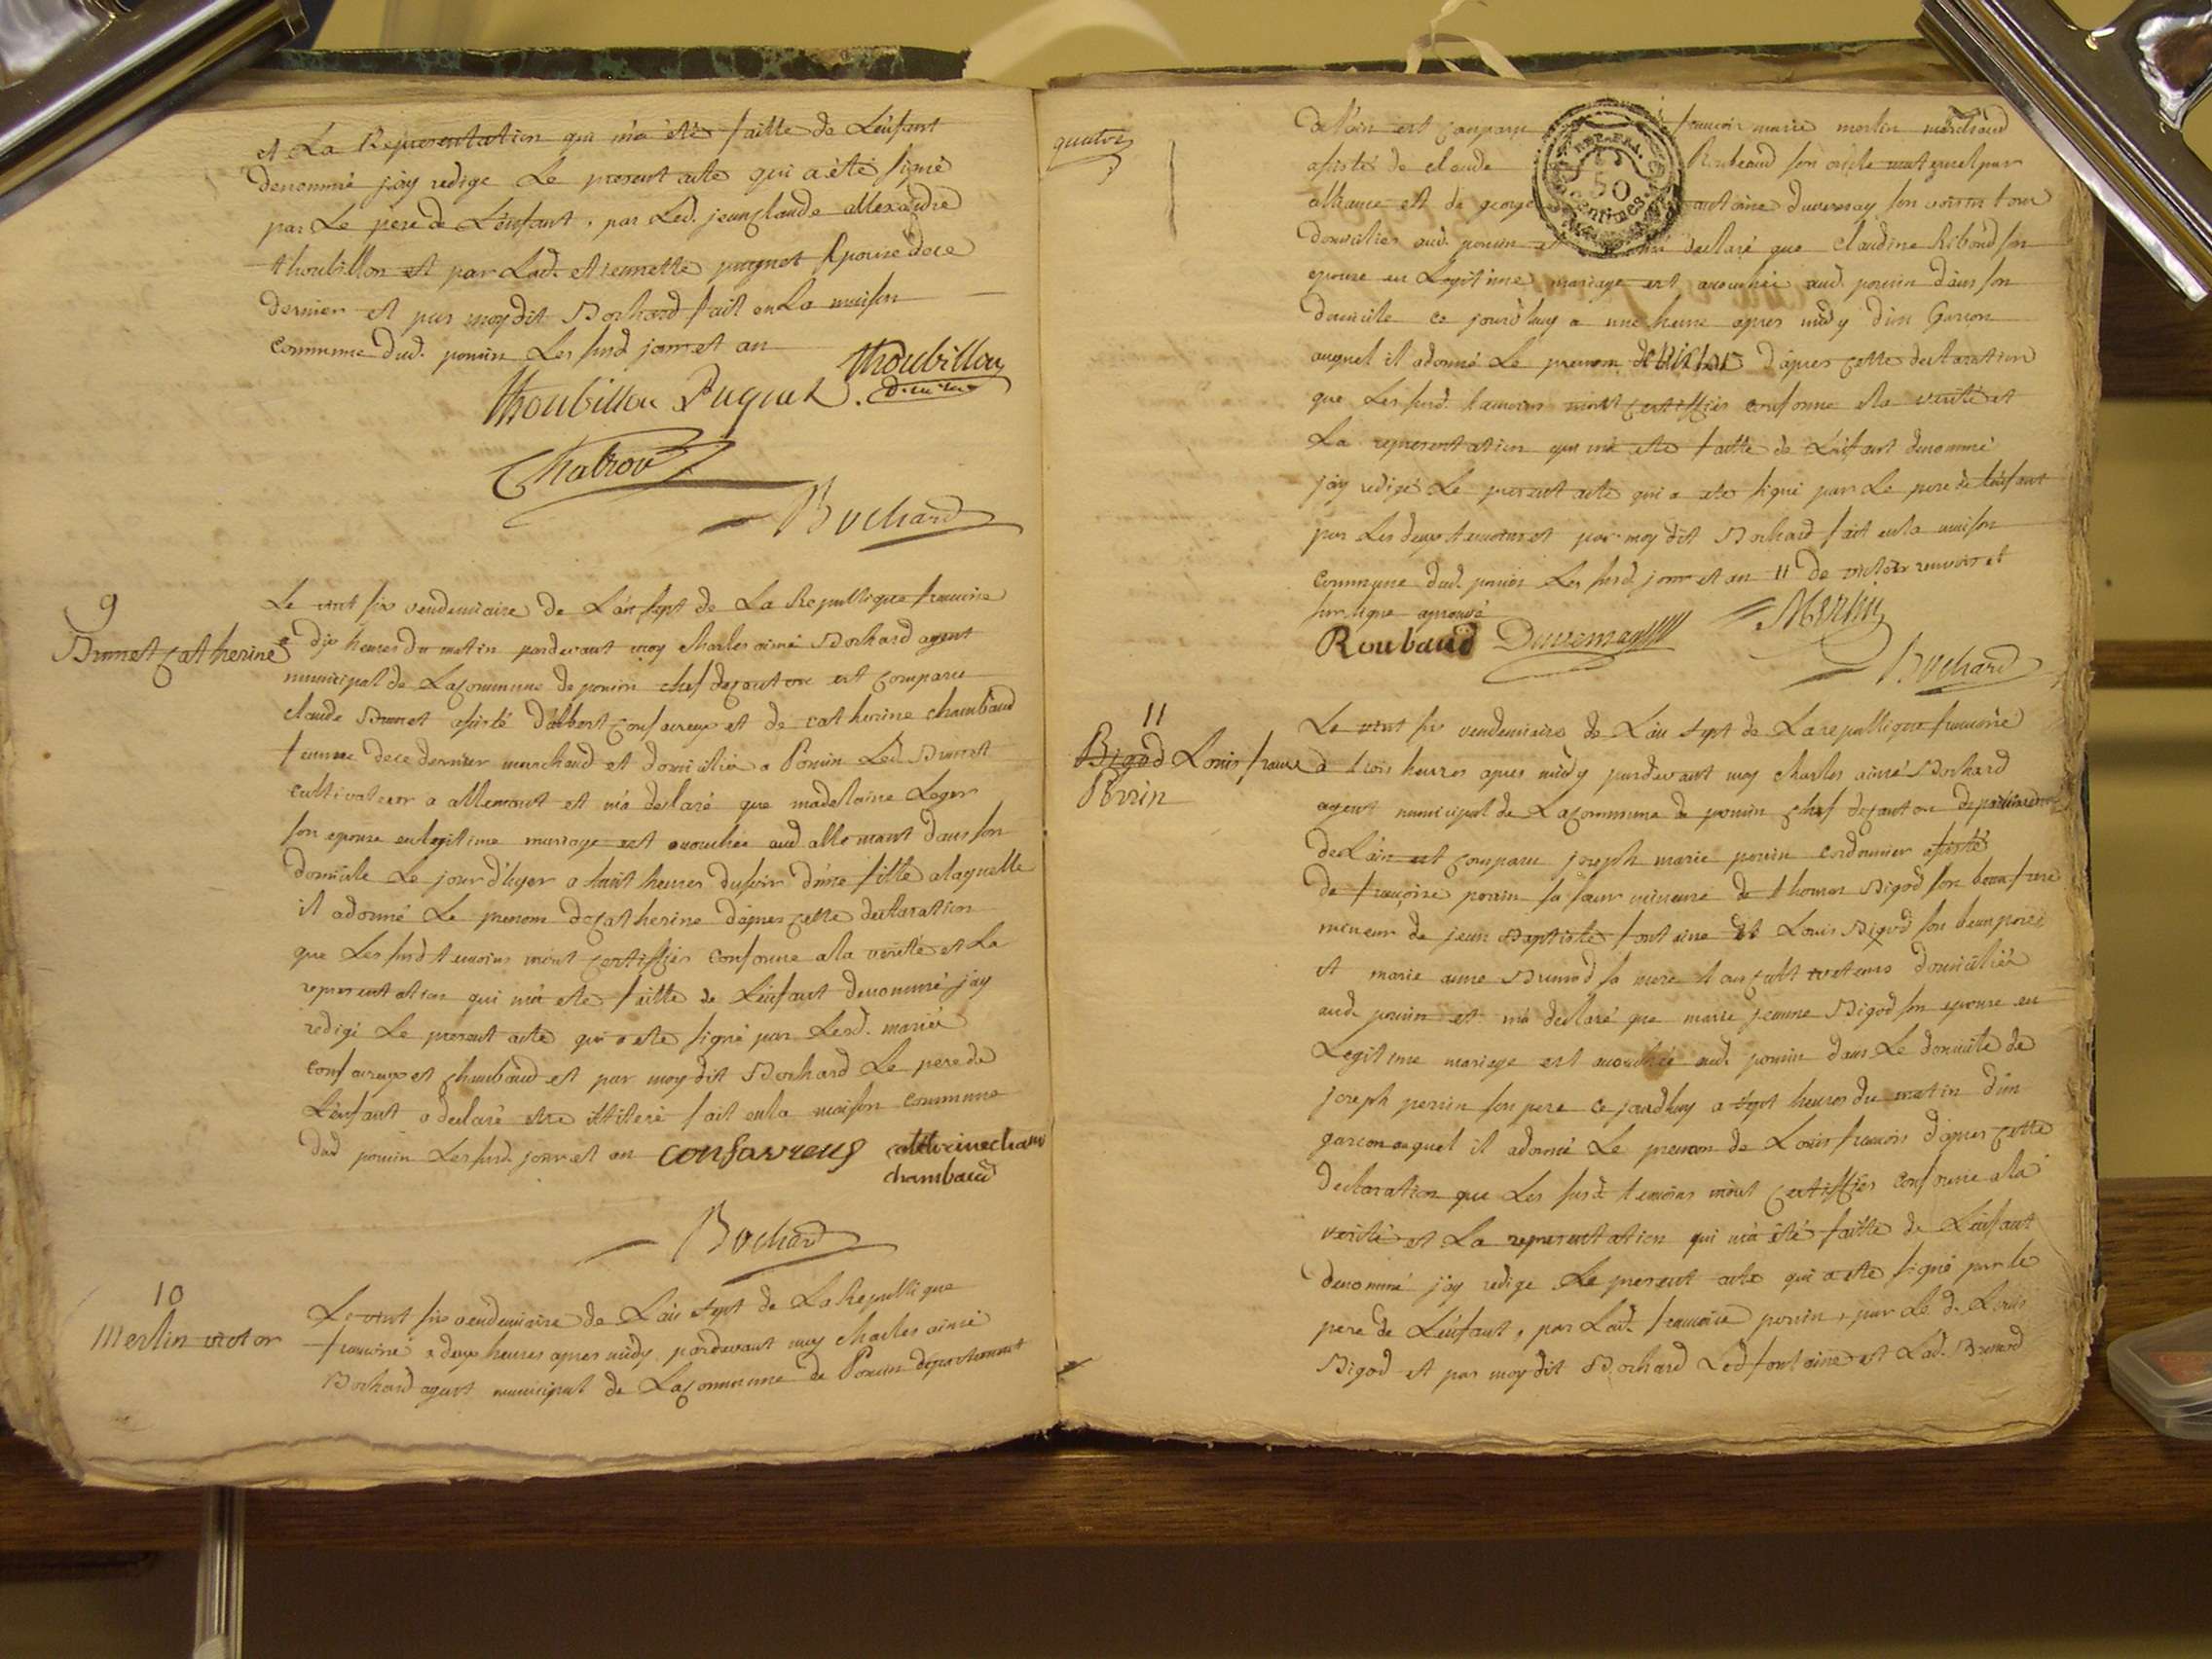 et La Representation qui m'a été faitte de L'enfant
denommé j'ay redige Le present acte qui a été signé
par Le pere de L'enfant, par Led. jean claude allexandre
thoubillon et par Lad. etiennette puquet Epouse de ce
dernier et par moy dit Bochard fait en La maison
commune dud. poncin Les susd. jour et an
Thoubillon
Thoubillon Puquet
Chatron
Bochard
9
Brunet Catherine
Le vint six vendemiaire de L'an sept de La Republique francoise
a dix heures du matin pardevant moy charles aimé Bochard agent
municipal de La commune de poncin chef de canton est comparu
claude Brunet assisté d'albert confavreux et de catherine chambaud
femme de ce dernier marchand et domiciliés a Poncin Led. Brunet
cultivateur a allement et m'a declaré que madelaine Leger
son epouse en legitime mariage est accouchée aud. allement dans son
domicile Le jour d'hyer a huit heures du soir d'une fille a laquelle
il a donné Le prenom de catherine d'apres cette declaration
que Les susd. temoins m'ont certiffiés conforme a la verité et La
representation qui m'a ete faitte de L'enfant denommé j'ay
redigé Le present acte qui a ete signé par Lesd. mariés
confavreux et chambaud et par moy dit Bochard Le pere de
L'enfant a declaré etre illiteré fait en la maison commune
dud. poncin Les susd. jour et an confavreus catterine cham
chambaud
Bochard
10
Merlin victor
Le vint six vendemiaire de L'an sept de La Republique
francoise a deux heures apres midy pardevant moy charles aimé
Bochard agent municipal de La commune de Poncin departement
quatre
de l'ain est comparu francois marie merlin marchand
assisté de claude Roubeaud son oncle maternel par
alliance et de george antoine duvernay son voisin tous
domiciliés aud. poncin et m'a declaré que claudine Riboud son
epouse en Legitime mariage est accouchée aud. poncin dans son
domicile ce jourd'huy a une heure apres midy d'un Garcon
auquel il a donné Le prenom de victor d'apres cette declaration
que Les susd. temoins m'ont certiffiés conforme a la verité et
La representation qui m'a ete faitte de L'enfant denommé
j'ay redigé Le present acte qui a ete signé par Le pere de L'enfant
par Les deux temoins et par moy dit Bochard fait en la maison
commune dud. poncin Les susd. jour et an 11 de victor renvois et
sur ligne aprouvé
Roubaud Duvernay Merlin
Bochard
11
Bigod Louis francois
Perrin
Le vint six vendemiaire de L'an sept de La republique francoise
a trois heures apres midy pardevant moy charles aimé Bochard
agent municipal de La commune de poncin chef de canton departement
de L'ain est comparu joseph marie perrin cordonnier assisté
de francoise perrin sa soeur mineure de thomas Bigod son beau frere
mineur de jean Baptiste fontaine et Louis Bigod son beau pere
et marie anne Brunod sa mere tous cultivateurs domiciliés
aud. poncin et m'a declaré que marie jeanne Bigod son epouse en
Legitime mariage est accouchée aud. poncin dans Le domicile de
joseph perrin son pere ce jourdhuy a sept heures du matin d'un
garcon auquel il a donné Le prenom de Louis francois d'apres cette
declaration que Les susd. temoins m'ont certiffiés conforme a la
verité et La representation qui m'a été faitte de L'enfant
denommé j'ay redigé Le present acte qui a ete signé par le
pere de L'enfant, par Lad. francoise perrin, par Le d. Louis
Bigod et par moy dit Bochard Led. fontaine et Lad. Brunod
REP. FRA.
50
centimes